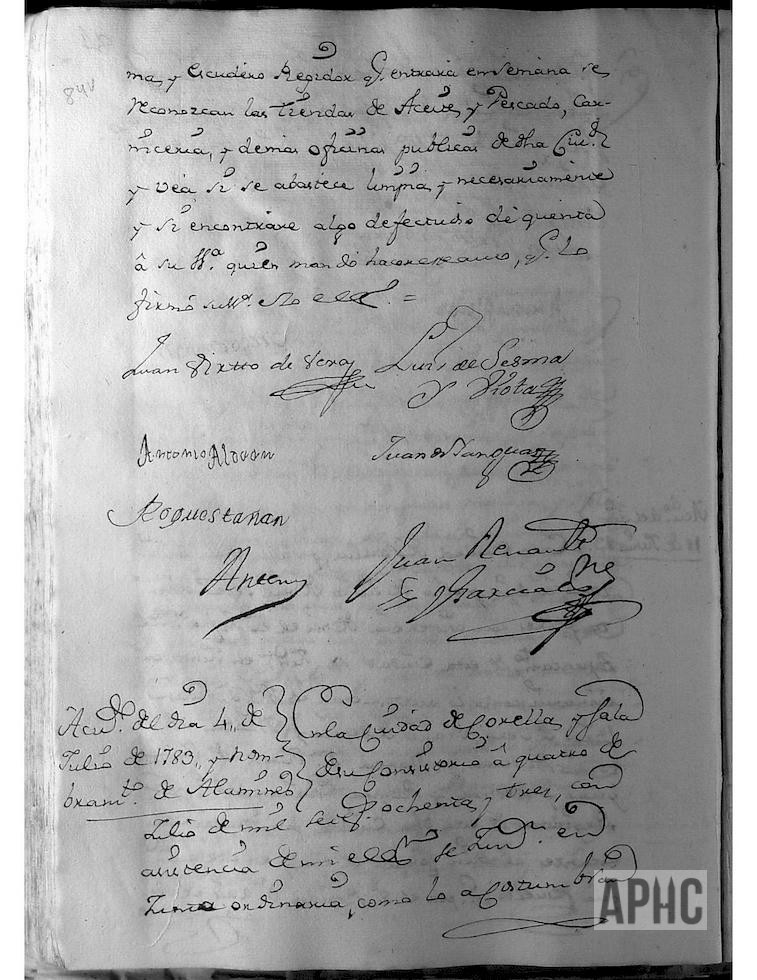 84v
ma, y Escudero Regidor q. entrara en Semana se
reconozcan las Tiendas de Aceite, y Pescado, Car-
niceria, y demas oficinas publicas de dha Ciud.
y vea si se abastece limpia, y necesariamente
y si encontrare algo defectuoso dé quenta
â su M. quien mandó hacer este auto, q. lo
firmó su M. =
Juan Virtto de Vera
Luis de Sesma
y Viota
Antonio Aldean
Juan de Yanguas
Roque Stañan
Antemi
Juan
y Garcia
Acu.do del dia 4,, de
Julio de 1783,, y nom-
bram.to de Alamines
En la Ciudad de Corella, y Sala
de su Consistorio â quatro de
Julio de mil setez.s ochenta, y tres, con
asistencia de mi el es.no se Junt.n en
Junta ordinaria, como lo acostumbran
APHC